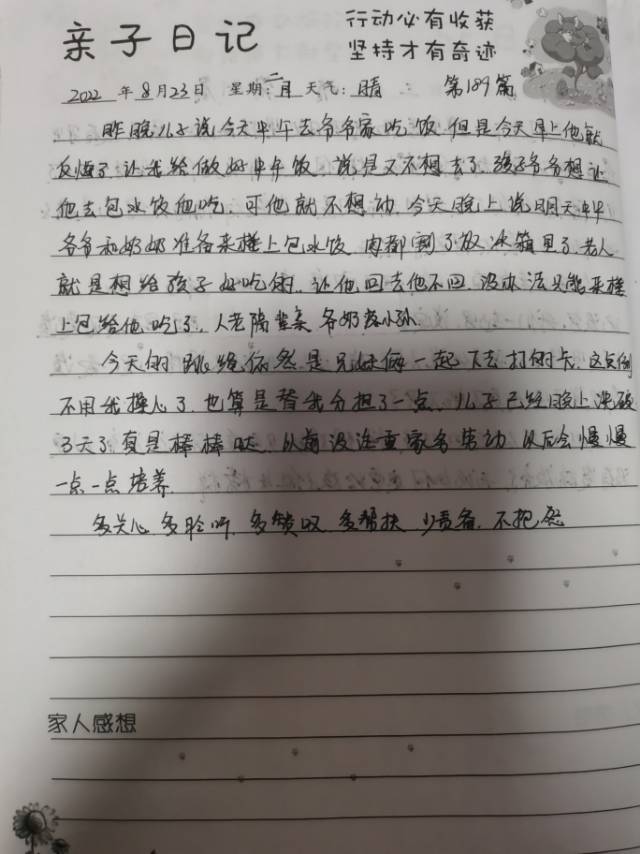 亲子日记
行动必有收获
坚持才有奇迹
2022 年 8月23日 星期:二 天气:晴 第189篇
昨晚儿子说今天中午去爷爷家吃饭,但是今天早上他就
反悔了,让我给做好中午饭,说是又不想去了,孩子爷爷想让
他去包水饺他吃,可他就不想动,今天晚上说明天中午
爷爷和奶奶准备来楼上包水饺,肉都割了放冰箱里了,老人
就是想给孩子好吃的,让他回去他不回,没办法只能来楼
上包给他吃了,人老隔辈亲,爷奶老小孙
今天的跳绳依然是兄妹俩一起下去打的卡,这点倒
不用我操心了,也算是替我分担了一点,儿子已经晚上洗碗
3天了,真是棒棒哒,以前没注重家务劳动,以后会慢慢
一点一点培养.
多关心,多聆听,多赞叹,多帮扶,少责备,不抱怨
家人感想